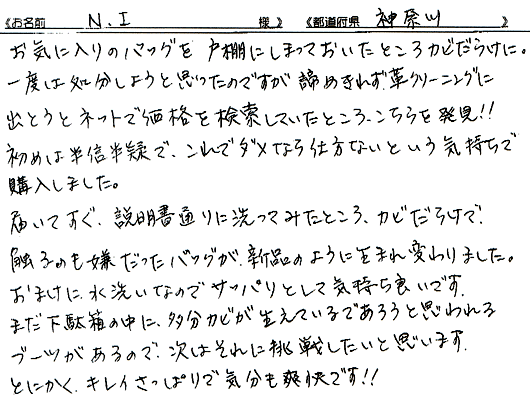 《お名前 N.I 様 》 《都道府県 神奈川 》
お気に入りのバッグを 戸棚にしまっておいたところカビだらけに。
一度は処分しようと思ったのですが 諦めきれず革クリーニングに
出そうとネットで価格を検索していたところ、こちらを発見!!
初めは半信半疑で、これでダメなら仕方ないという気持ちで
購入しました。
届いてすぐ、説明書通りに洗ってみたところ、カビだらけで、
触るのも嫌だったバッグが、新品のように生まれ変わりました。
おまけに、水洗いなのでサッパリとして気持ち良いです。
まだ下駄箱の中に、多分カビが生えているであろうと思われる
ブーツがあるので、次はそれに挑戦したいと思います。
とにかく、キレイさっぱりで気分も爽快です!!